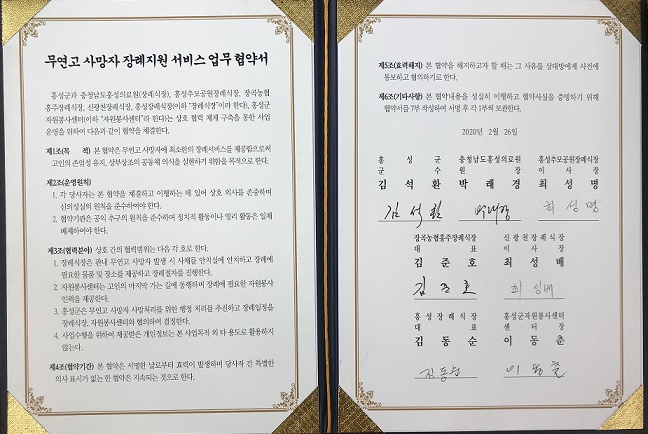 무연고 사망자 장례지원 서비스 업무 협약서
홍성군과 충청남도홍성의료원(장례식장), 홍성추모공원장례식장, 장곡농협
홍주장례식장, 신광천장례식장, 홍성장례식장(이하 "장례식장"이라 한다), 홍성군
자원봉사센터(이하 "자원봉사센터"라 한다)는 상호 협력 체계 구축을 통한 사업
운영을 위하여 다음과 같이 협약을 체결한다.
제1조(목 적) 본 협약은 무연고 사망자에 최소한의 장례서비스를 제공함으로써
고인의 존엄성 유지, 상부상조의 공동체 의식을 실현하기 위함을 목적으로 한다.
제2조(운영원칙)
1. 각 당사자는 본 협약을 체결하고 이행하는 데 있어 상호 의사를 존중하며
신의성실의 원칙을 준수하여야 한다.
2. 협약기관은 공익 추구의 원칙을 준수하며 정치적 활동이나 영리 활동은 일체
배제하여야 한다.
제3조(협력분야) 상호 간의 협력범위는 다음 각 호로 한다.
1. 장례식장은 관내 무연고 사망자 발생 시 사체를 안치실에 안치하고 장례에
필요한 물품 및 장소를 제공하고 장례절차를 진행한다.
2. 자원봉사센터는 고인의 마지막 가는 길에 동행하며 장례에 필요한 자원봉사
인력을 제공한다.
3. 홍성군은 무연고 사망자 사망처리를 위한 행정 처리를 추진하고 장례일정을
장례식장, 자원봉사센터와 협의하여 결정한다.
4. 사업수행을 위하여 제공받은 개인정보는 본 사업목적 외 타 용도로 활용하지
않는다.
제4조(협약기간) 본 협약은 서명한 날로부터 효력이 발생하며 당사자 간 특별한
의사 표시가 없는 한 협약은 지속되는 것으로 한다.
제5조(효력해지) 본 협약을 해지하고자 할 때는 그 사유를 상대방에게 사전에
통보하고 협의하기로 한다.
제6조(기타사항) 본 협약내용을 성실히 이행하고 협약사실을 증명하기 위해
협약서를 7부 작성하여 서명 후 각 1부씩 보관한다.
2020년 2월 26일
홍성군 충청남도홍성의료원 홍성추모공원장례식장
군수 원장 이사장
김석환 박래경 최성명
김석환 박래경 최성명
장곡농협홍주장례식장 신광천장례식장
대표 이사장
김준호 최성배
김준호 최성배
홍성장례식장 홍성군자원봉사센터
대표 센터장
김동순 이동춘
김동순 이동춘